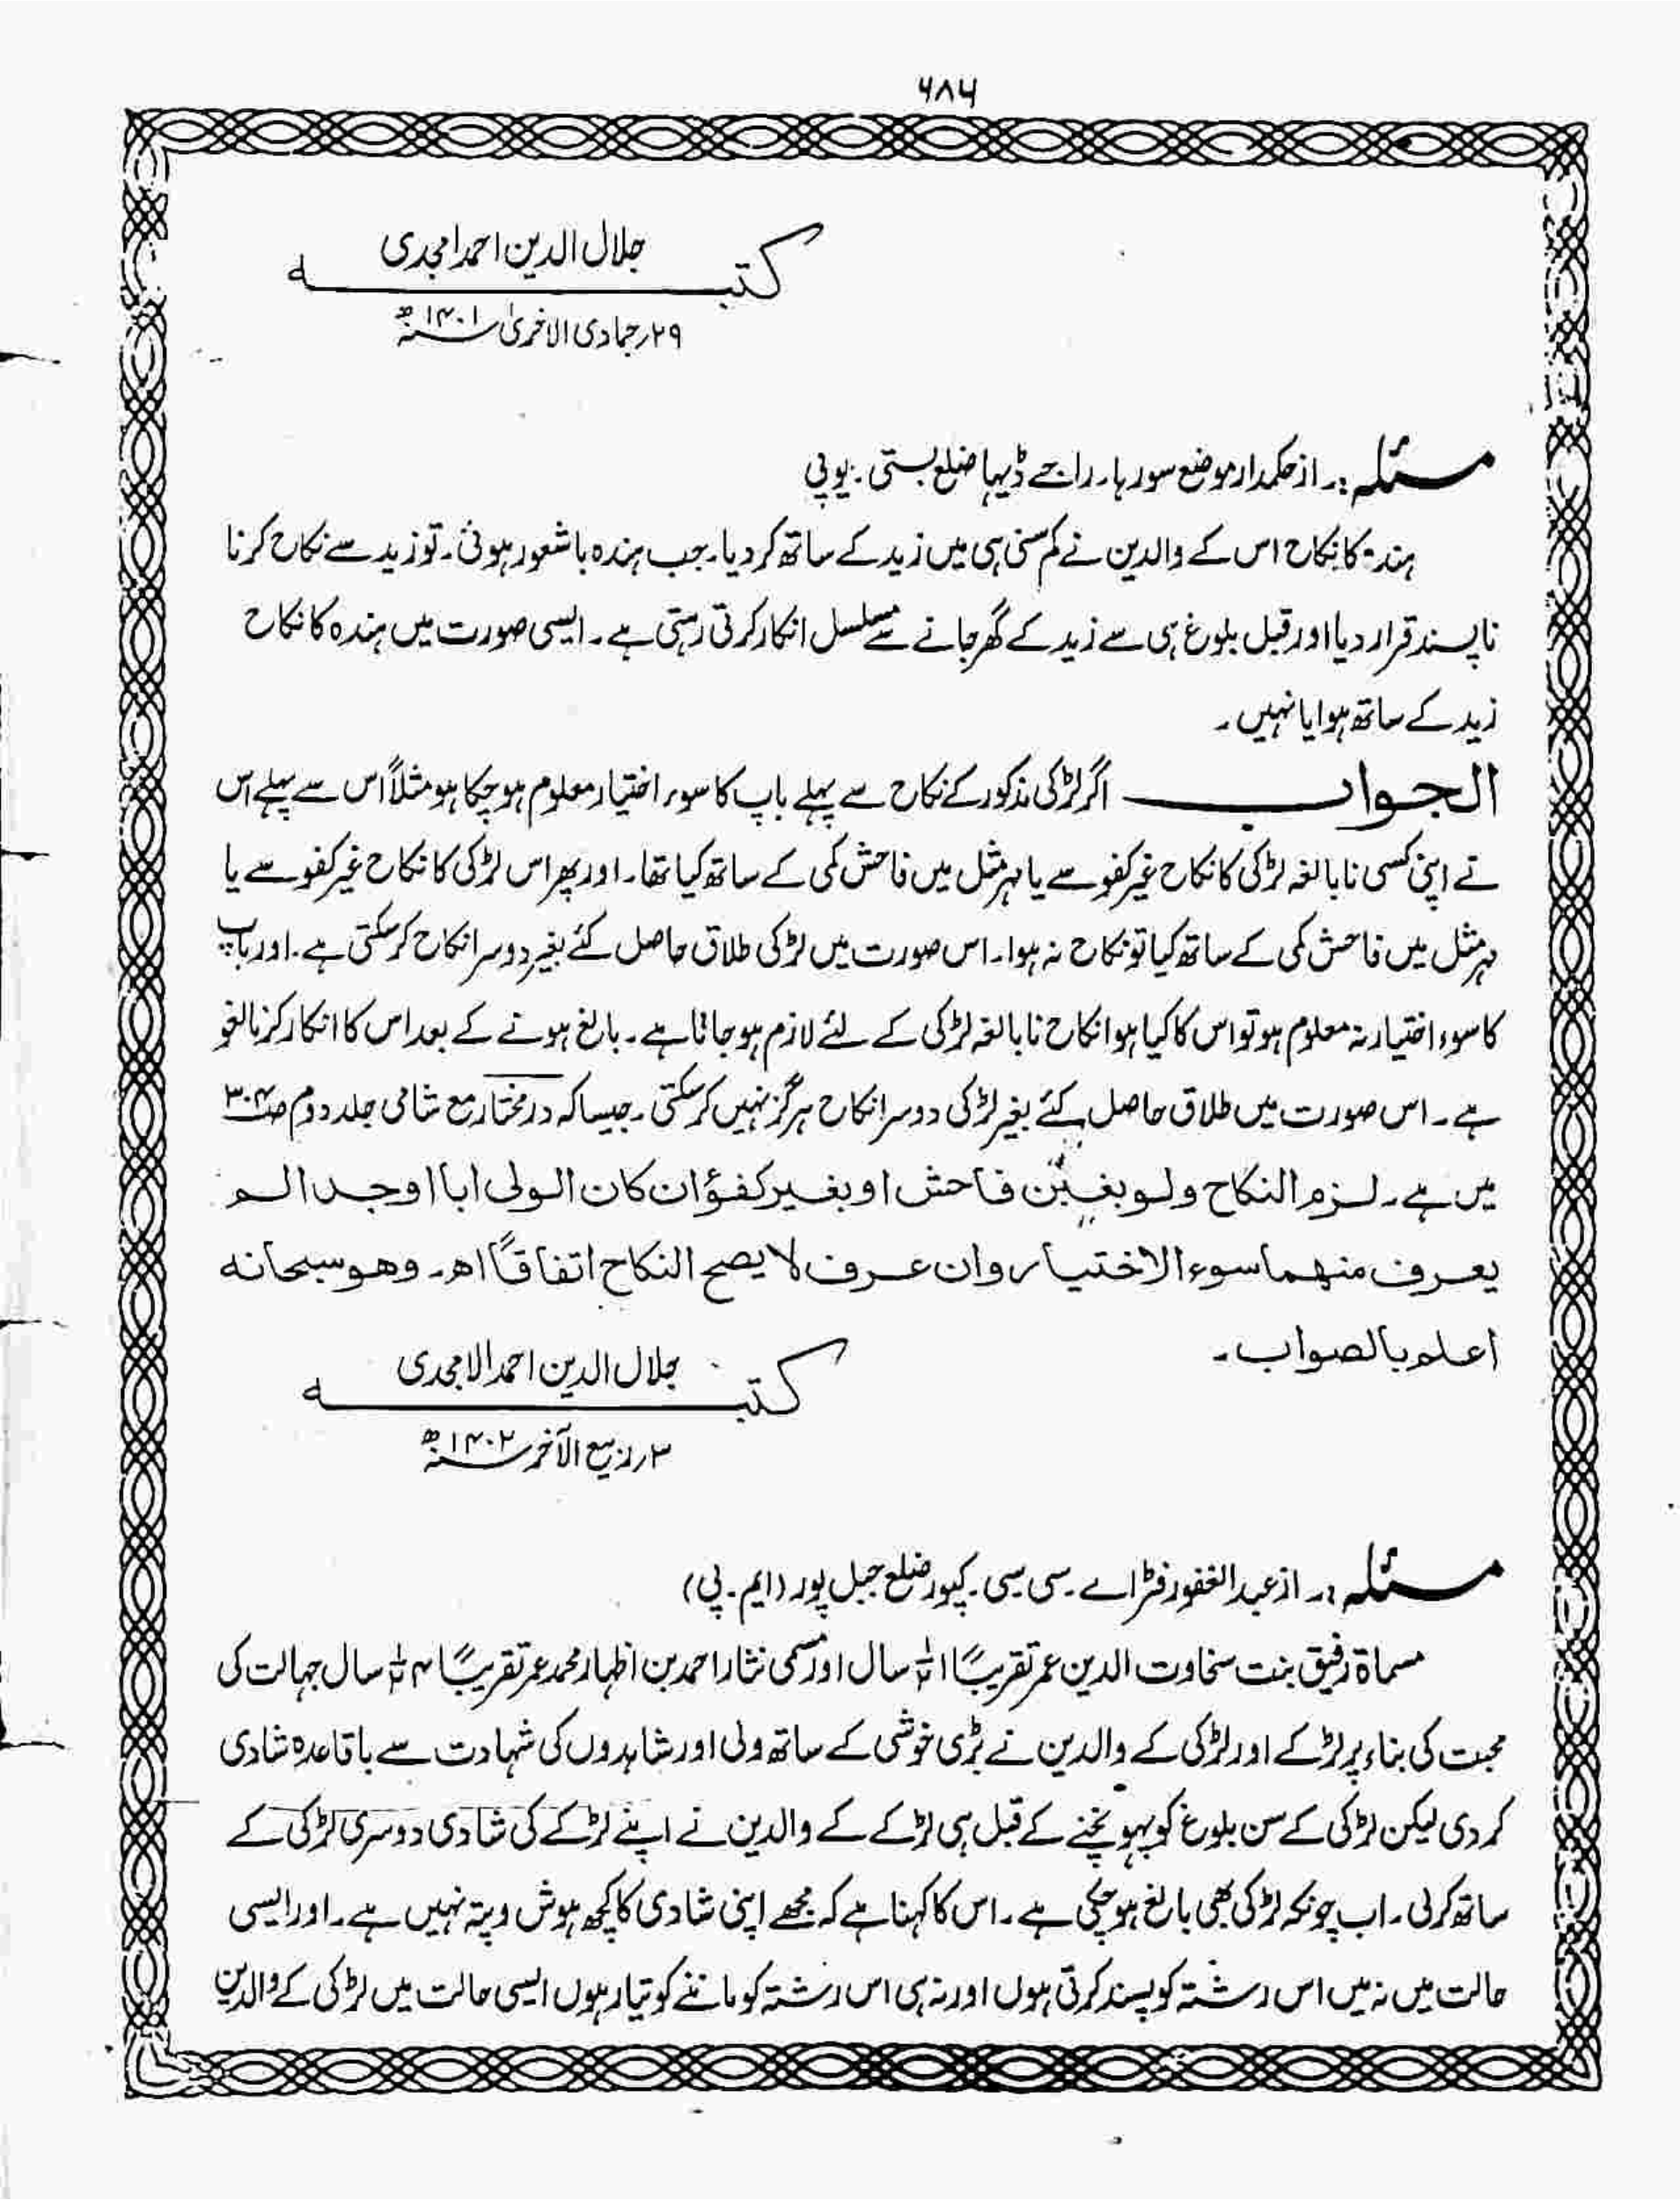 ۶۸۶
جلال الدین احمد امجدی
کتبـــــــــہ
۲۹؍ جمادی الاخریٰ سنہ ۱۴۰۱ھ
مسئلہ :۔ از حکمدار موضع سورہا۔ راجے ڈیہا ضلع بستی۔ یوپی
ہندہ کا نکاح اس کے والدین نے کم سنی ہی میں زید کے ساتھ کر دیا۔ جب ہندہ باشعور ہوئی۔ تو زید سے نکاح کرنا
ناپسند قرار دیا اور قبل بلوغ ہی سے زید کے گھر جانے سے مسلسل انکار کرتی رہتی ہے۔ ایسی صورت میں ہندہ کا نکاح
زید کے ساتھ ہوا یا نہیں۔
الجواب ـــــــ اگر لڑکی مذکور کے نکاح سے پہلے باپ کا سوء اختیار معلوم ہو چکا ہو مثلاً اس سے پہلے اس
نے اپنی کسی نابالغہ لڑکی کا نکاح غیر کفو سے یا مہر مثل میں فاحش کمی کے ساتھ کیا تھا۔ اور پھر اس لڑکی کا نکاح غیر کفو سے یا
مہر مثل میں فاحش کمی کے ساتھ کیا تو نکاح نہ ہوا۔ اس صورت میں لڑکی طلاق حاصل کئے بغیر دوسرا نکاح کر سکتی ہے۔ اور باپ
کا سوء اختیار نہ معلوم ہو تو اس کا کیا ہوا نکاح نابالغہ لڑکی کے لئے لازم ہو جاتا ہے۔ بالغ ہونے کے بعد اس کا انکار کرنا لغو
ہے۔ اس صورت میں طلاق حاصل کئے بغیر لڑکی دوسرا نکاح ہرگز نہیں کر سکتی۔ جیسا کہ درمختار مع شامی جلد دوم صـ۳۰۴
میں ہے۔ لزم النکاح ولو بغبن فاحش او بغیر کفؤ ان کان الولی ابا او جدا لم
یعرف منھما سوء الاختیار وان عرف لا یصح النکاح اتفاقًا اھ۔ وھو سبحانہ
اعلم بالصواب۔
جلال الدین احمد الامجدی
کتبـــــــــہ
۳؍ ربیع الآخر سنہ ۱۴۰۲ھ
مسئلہ :۔ از عبد الغفور فٹر اے۔ سی سی۔ کیور ضلع جبل پور (ایم۔ پی)
مسماۃ رفیق بنت سخاوت الدین عمر تقریبًا سال اور مسمی نثار احمد بن اظہار محمد عمر تقریبًا سال جہالت کی
محبت کی بناء پر لڑکے اور لڑکی کے والدین نے بڑی خوشی کے ساتھ ولی اور شاہدوں کی شہادت سے باقاعدہ شادی
کر دی لیکن لڑکی کے سن بلوغ کو پہونچنے کے قبل ہی لڑکے کے والدین نے اپنے لڑکے کی شادی دوسری لڑکی کے
ساتھ کر لی۔ اب چونکہ لڑکی بھی بالغ ہو چکی ہے۔ اس کا کہنا ہے کہ مجھے اپنی شادی کا کچھ ہوش و پتہ نہیں ہے۔ اور ایسی
حالت میں نہ میں اس رشتہ کو پسند کرتی ہوں اور نہ ہی اس رشتہ کو ماننے کو تیار ہوں ایسی حالت میں لڑکی کے والدین